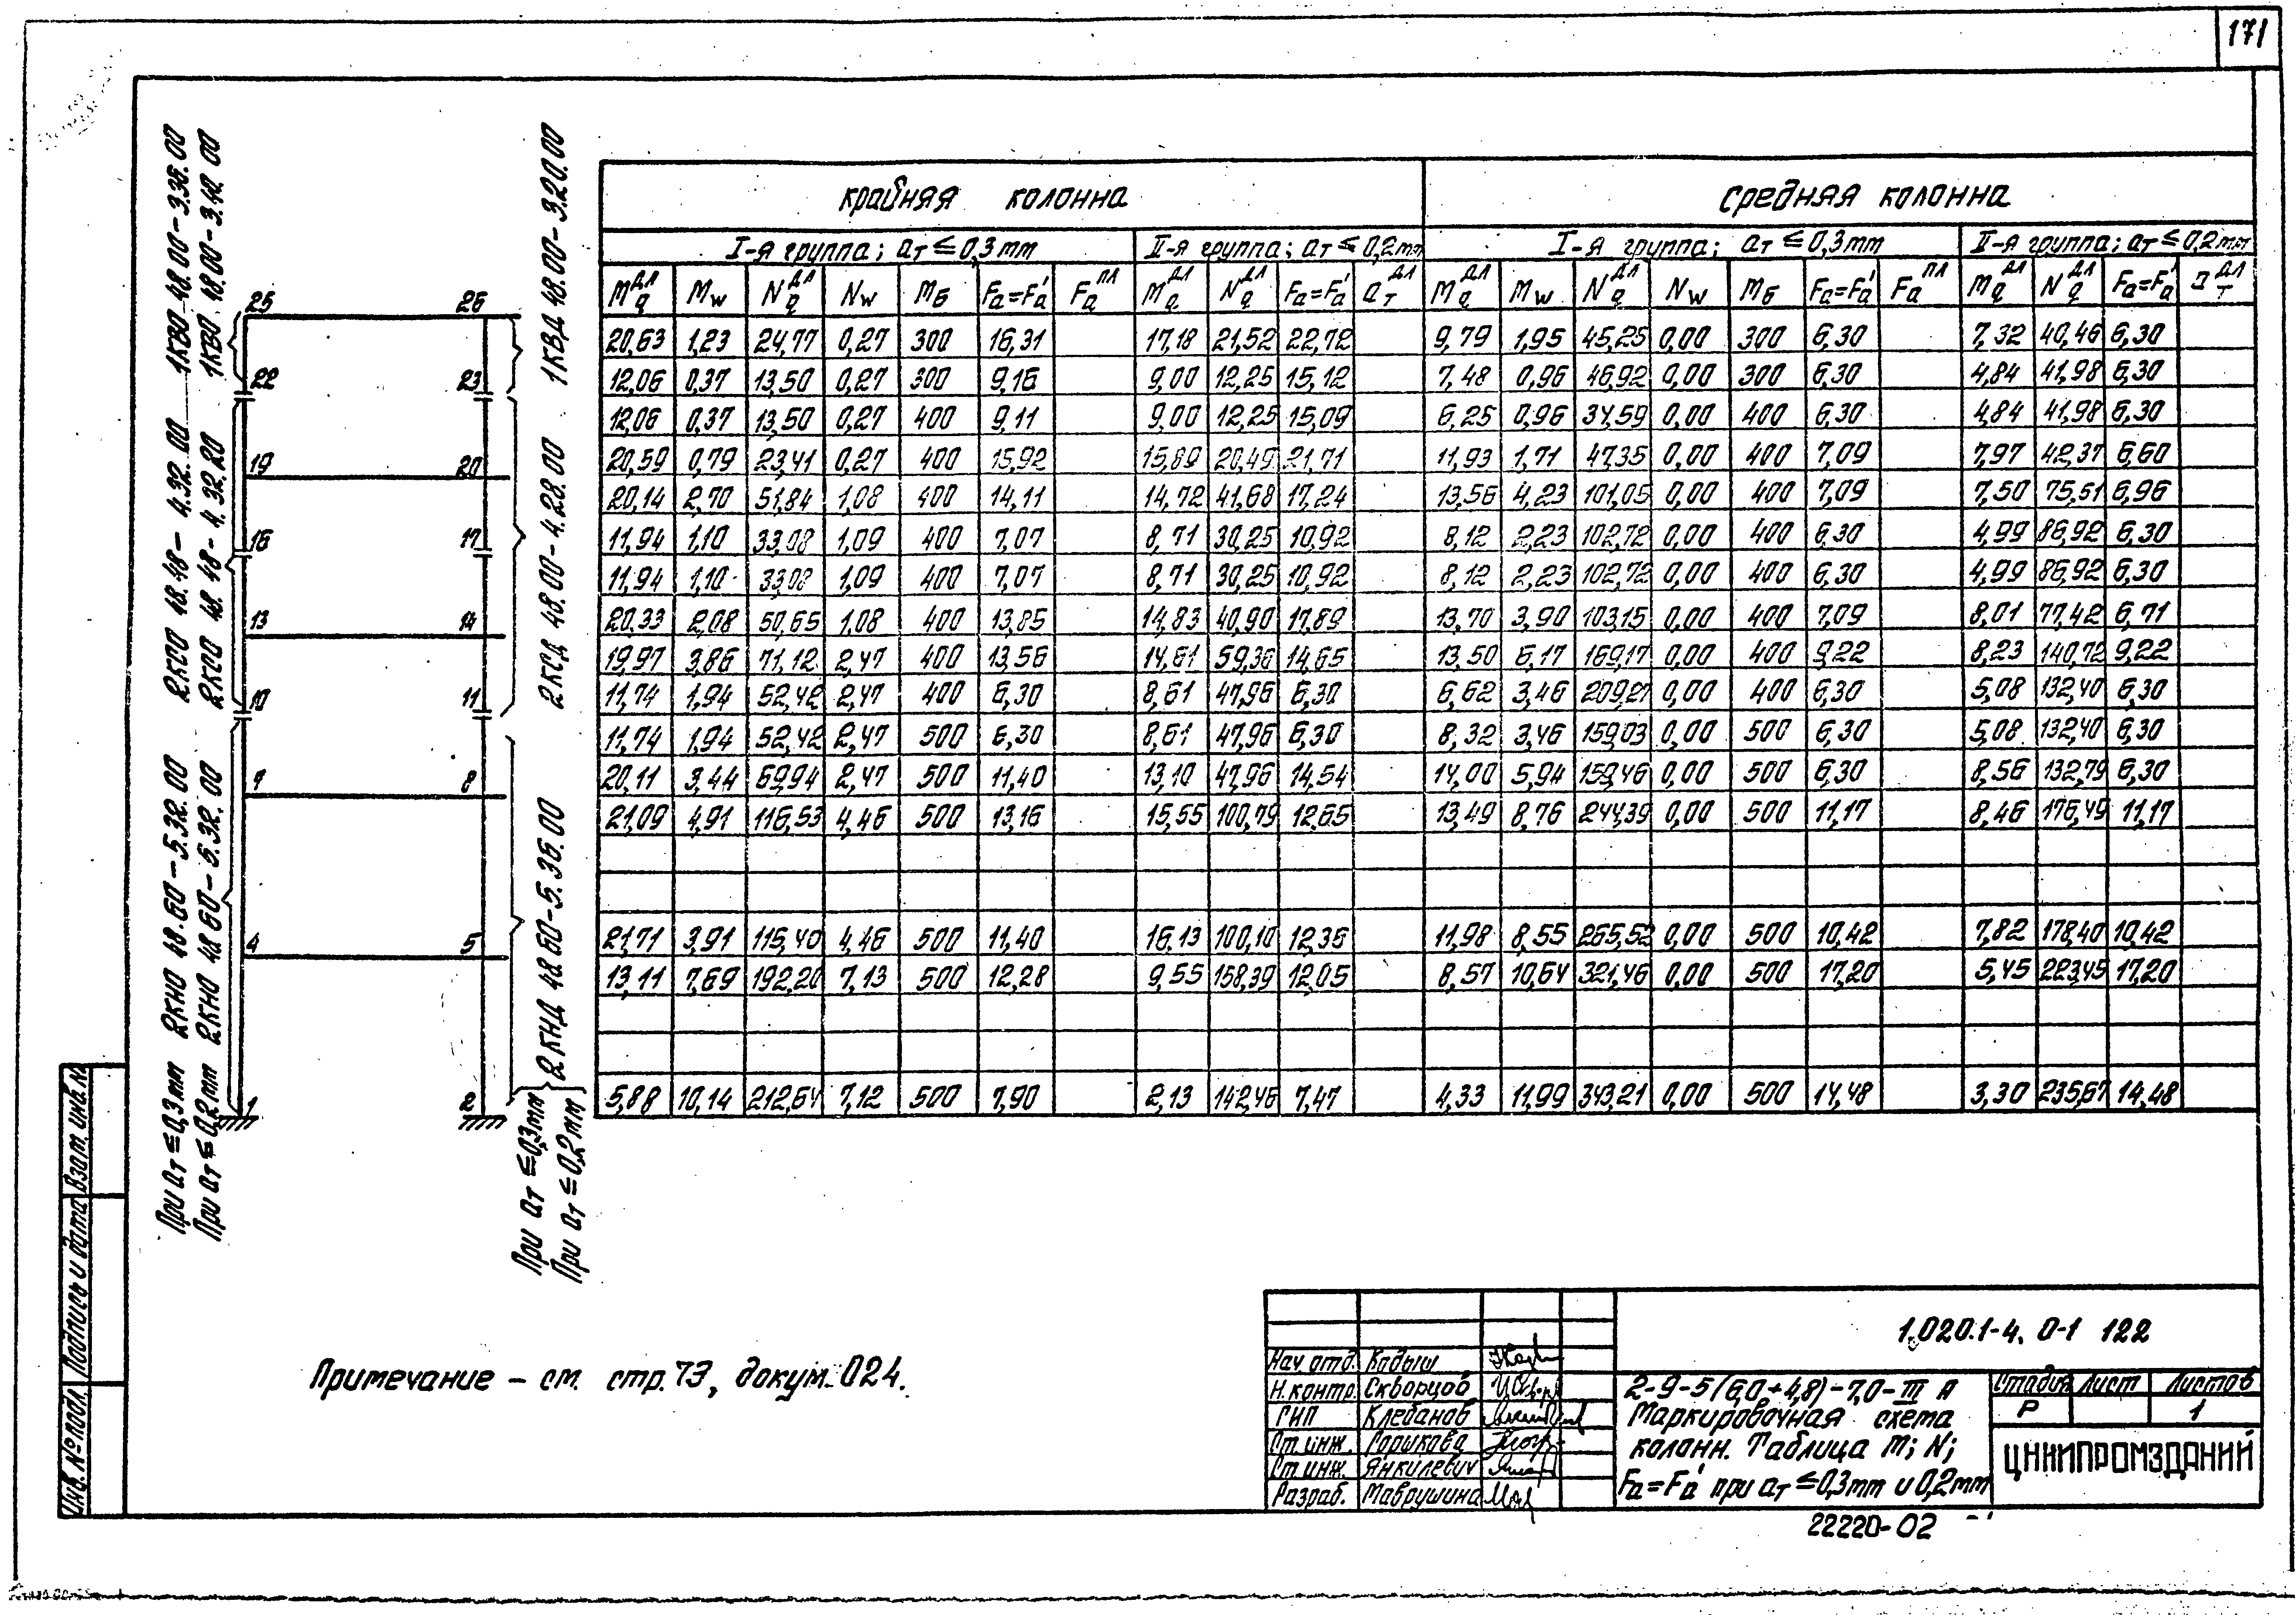 171
1КВО 48.00-3.35.00
1КВО 48.00-3.40.00
2КСО 48.48-4.32.00
2КСО 48.48-4.32.20
2КНО 48.60-5.32.00
2КНО 48.60-5.32.00
При aт≤0,3mm
При aт≤0,2mm
1КВД 48.00-3.20.00
2КСД 48.00-4.28.00
2КНД 48.60-5.36.00
При aт≤0,3mm
При aт≤0,2mm
25 26
22 23
19 20
16 17
13 14
10 11
7 8
4 5
1 2
крайняя колонна средняя колонна
I-я группа; aт≤0,3mm II-я группа; aт≤0,2mm I-я группа; aт≤0,3mm II-я группа; aт≤0,2mm
Mq дл Mw Nq дл Nw Mб Fa=Fa' Fa пл Mq дл Nq дл Fa=Fa' aт дл Mq дл Mw Nq дл Nw Mб Fa=Fa' Fa пл Mq дл Nq дл Fa=Fa' aт дл
20,63 1,23 24,77 0,27 300 16,31 17,18 21,52 22,72 9,79 1,95 45,25 0,00 300 6,30 7,32 40,46 6,30
12,06 0,37 13,50 0,27 300 9,16 9,00 12,25 15,12 7,48 0,96 46,92 0,00 300 6,30 4,84 41,98 6,30
12,06 0,37 13,50 0,27 400 9,11 9,00 12,25 15,09 6,25 0,96 34,59 0,00 400 6,30 4,84 41,98 6,30
20,59 0,79 23,41 0,27 400 15,92 15,89 20,49 21,71 11,93 1,71 47,35 0,00 400 7,09 7,97 42,37 6,60
20,14 2,70 51,84 1,08 400 14,11 14,72 41,68 17,24 13,56 4,23 101,05 0,00 400 7,09 7,50 75,51 6,96
11,94 1,10 33,08 1,09 400 7,07 8,71 30,25 10,92 8,12 2,23 102,72 0,00 400 6,30 4,99 86,92 6,30
11,94 1,10 33,08 1,09 400 7,07 8,71 30,25 10,92 8,12 2,23 102,72 0,00 400 6,30 4,99 86,92 6,30
20,33 2,08 50,65 1,08 400 13,85 14,83 40,90 17,89 13,70 3,90 103,15 0,00 400 7,09 8,01 77,42 6,71
19,97 3,86 71,12 2,47 400 13,56 14,61 59,36 14,65 13,50 6,17 169,17 0,00 400 9,22 8,23 140,72 9,22
11,74 1,94 52,42 2,47 400 6,30 8,61 47,96 6,30 6,62 3,46 209,27 0,00 400 6,30 5,08 132,40 6,30
11,74 1,94 52,42 2,47 500 6,30 8,61 47,96 6,30 8,32 3,46 159,03 0,00 500 6,30 5,08 132,40 6,30
20,11 3,44 69,94 2,47 500 11,40 13,10 47,96 14,54 14,00 5,94 159,46 0,00 500 6,30 8,56 132,79 6,30
21,09 4,91 116,53 4,46 500 13,16 15,55 100,79 12,65 13,49 8,76 244,39 0,00 500 11,17 8,46 176,49 11,17
21,71 3,91 115,40 4,46 500 11,40 16,13 100,10 12,36 11,98 8,55 265,52 0,00 500 10,42 7,82 178,40 10,42
13,11 7,69 192,20 7,13 500 12,28 9,55 158,39 12,05 8,57 10,64 321,46 0,00 500 17,20 5,45 223,45 17,20
5,88 10,14 212,64 7,12 500 7,90 2,13 142,46 7,47 4,33 11,99 343,21 0,00 500 14,48 3,30 235,67 14,48
Примечание - см. стр. 73, докум. 024.
Взам. инв. №
Подпись и дата
Инв. № подл.
Нач. отд. Кодыш
Н. контр. Скворцов
ГИП Клебанов
Ст. инж. Горшкова
Ст. инж. Янкилевич
Разраб. Маврушина
1.020.1-4. 0-1 122
2-9-5(6,0+4,8)-7,0-III А
Маркировочная схема
колонн. Таблица M; N;
Fa=Fa' при aт≤0,3mm и 0,2mm
Стадия Лист Листов
Р 1
ЦНИИПРОМЗДАНИЙ
22220-02